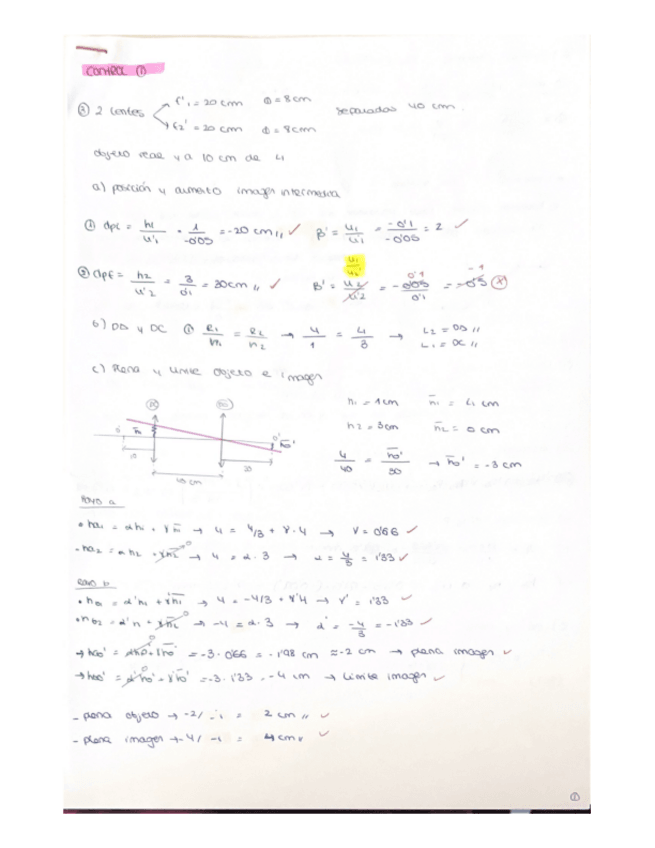 Control ①
② 2 lentes f'1 = 20 cm Φ = 8 cm separadas 40 cm.
f2' = 20 cm Φ = 8 cm
objeto real y a 10 cm de L1
a) posición y aumento imagen intermedia
① dpc = h1/u'1 · 1/-0'05 = -20 cm // β' = u1/u'1 = -0'1/-0'05 = 2
② dpf = h2/u'2 = 3/0'1 = 30 cm // β' = u2/u'2 = -0'05/0'1 = -0'5
u1/u2'
0'1
-1
b) DA y DC ① R1/h1 = R2/h2 → 4/1 = 4/3 →
L2 = DA //
L1 = DC //
c) Plena y límite objeto e imagen
h1 = 1 cm h̄1 = 4 cm
h2 = 3 cm h̄2 = 0 cm
4/40 = h̄o'/30 → h̄o' = -3 cm
10
40 cm
30
Rayo a
• ha1 = αh1 + γh̄1 → 4 = 4/3 + γ·4 → γ = 0'66
- ha2 = αh2 + γh̄2 → 4 = α·3 → α = 4/3 = 1'33
Rayo b
• hb1 = α'h1 + γ'h̄1 → 4 = -4/3 + γ'4 → γ' = 1'33
• hb2 = α'h + γh̄2 → -4 = α·3 → α' = -4/3 = -1'33
= -3·0'66 = -1'98 cm ≈ -2 cm → plena imagen
= -3·1'33 = -4 cm → límite imagen
- plena objeto → -2/-1 = 2 cm //
- plena imagen → -4/-1 = 4 cm
①